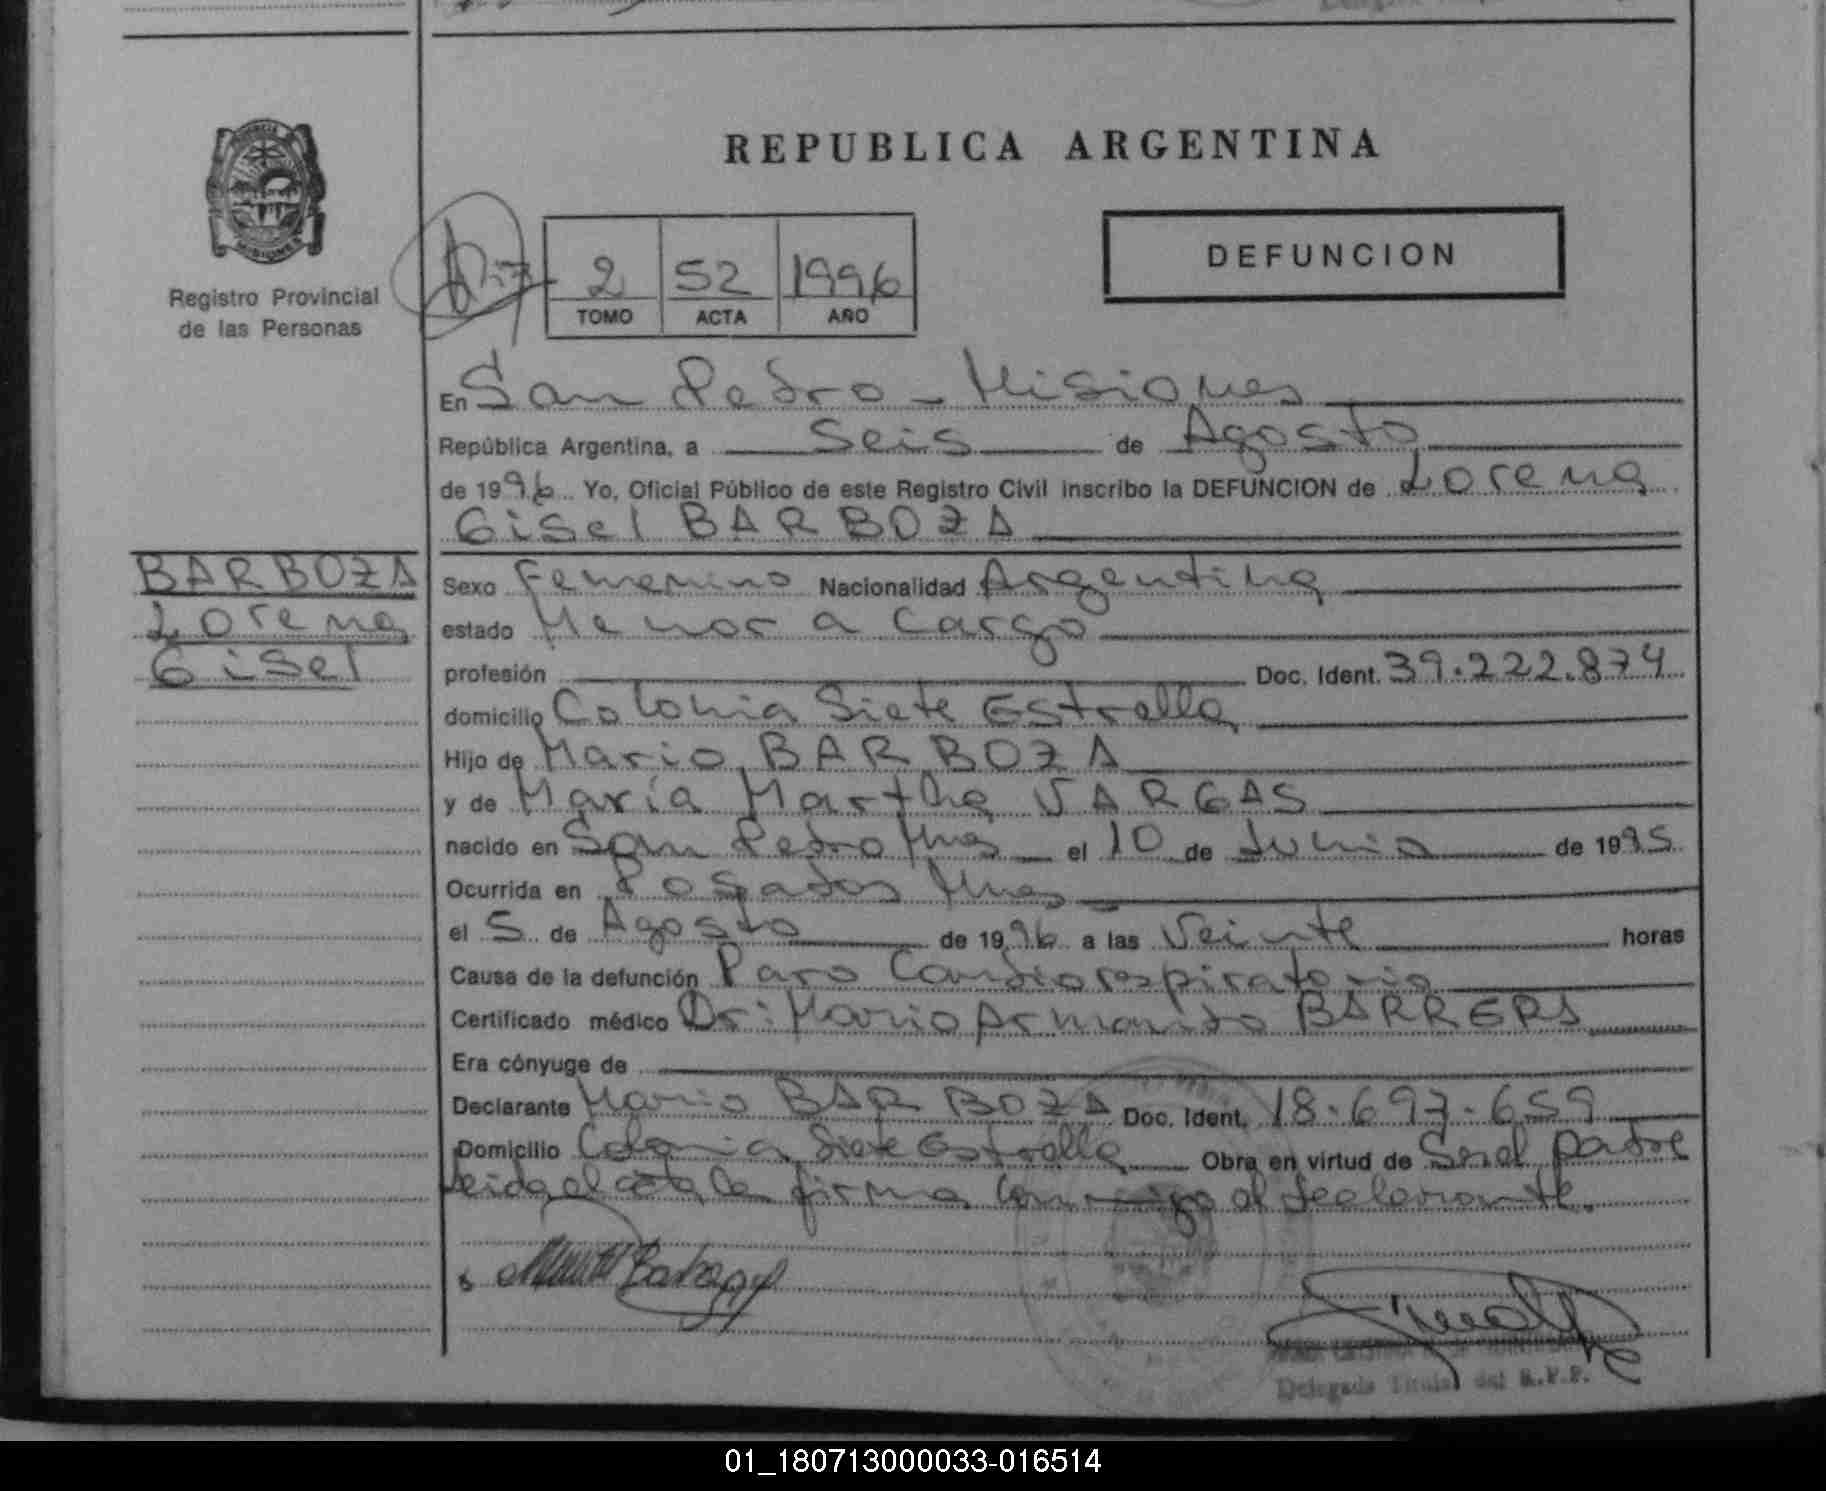 REPUBLICA ARGENTINA
DEFUNCION
PROVINCIA
MISIONES
Registro Provincial
de las Personas
2 52 1996
TOMO ACTA AÑO
En San Pedro - Misiones
República Argentina, a Seis de Agosto
de 1996 Yo, Oficial Público de este Registro Civil inscribo la DEFUNCION de Lorena
Gisel BARBOZA
BARBOZA
Lorena
Gisel
Sexo Femenino Nacionalidad Argentina
estado Menor a cargo
profesión Doc. Ident. 39.222.874
domicilio Colonia Siete Estrella
Hijo de Mario BARBOZA
y de María Martha VARGAS
nacido en San Pedro Mnes el 10 de Junio de 1995
Ocurrida en Posadas Mnes
el 5 de Agosto de 1996 a las Veinte horas
Causa de la defunción Paro Cardiorespiratorio
Certificado médico Dr: Mario Armando BARRERA
Era cónyuge de
Declarante Mario BARBOZA Doc. Ident. 18.697.659
Domicilio Colonia Siete Estrella Obra en virtud de Ser el padre
leida el acta la firma conmigo el declarante.
Delegada Titular del R.P.P.
01_180713000033-016514